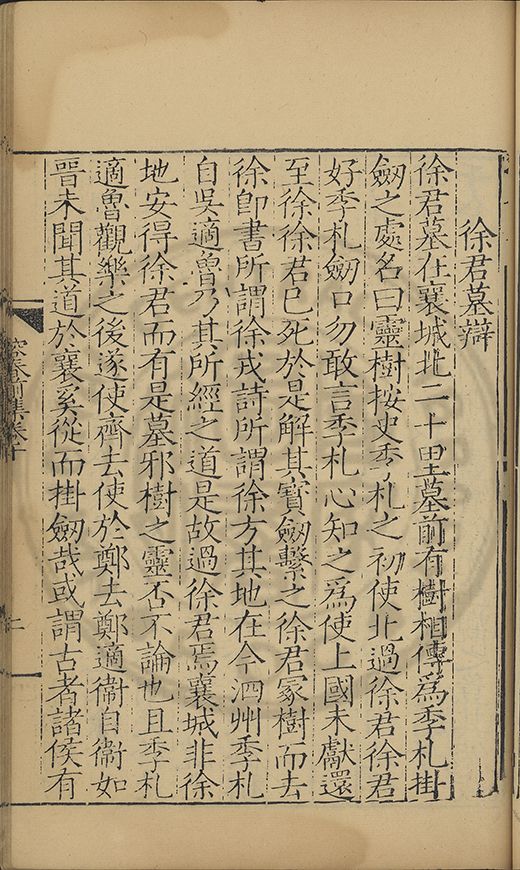 徐君墓辯
徐君墓在襄城北二十里墓前有樹相傳爲季札掛
劒之處名曰靈樹按史季札之初使北過徐君徐君
好季札劒口勿敢言季札心知之爲使上國未獻還
至徐徐君已死於是解其寶劒繫之徐君冢樹而去
徐即書所謂徐戎詩所謂徐方其地在今泗州季札
自吳適魯乃其所經之道是故過徐君焉襄城非徐
地安得徐君而有是墓邪樹之靈否不論也且季札
適魯觀樂之後遂使齊去使於鄭去鄭適衞自衞如
晋未聞其道於襄奚從而掛劒哉或謂古者諸侯有
集卷十
二